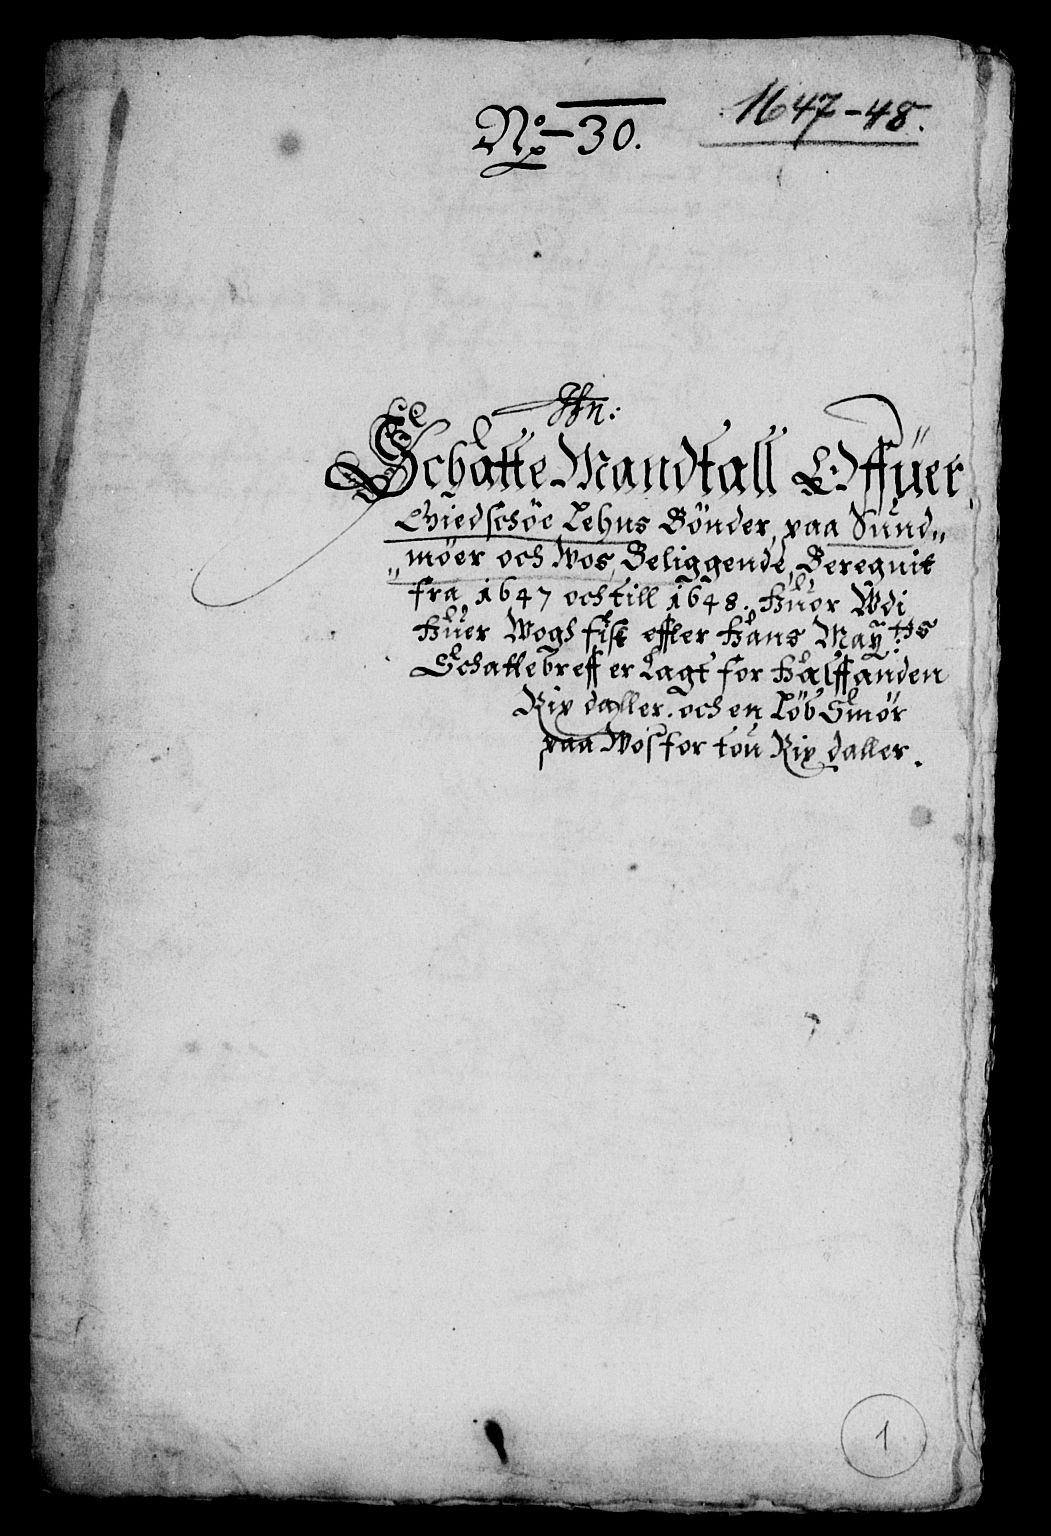 1647-48.
No 30.
Schatte Mandtall Offuer
Giedschöe Lehns Bönder, paa Sund,,
,,möer och Wos, Beliggende, Beregnit
fra 1647 och till 1648. Huor Wdi
Huer Wogh fisk effter Hans May:tts
Schattebreff er Lagt for Halffanden
Rix daller. och en Löb Smör
paa Wos for tou Rix daller.
1